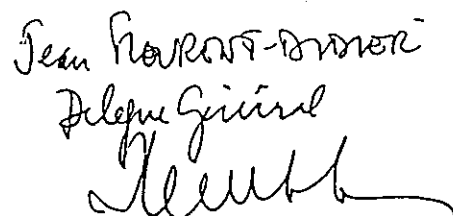 Jean FLEURENT-DIDIER
Délégué Général